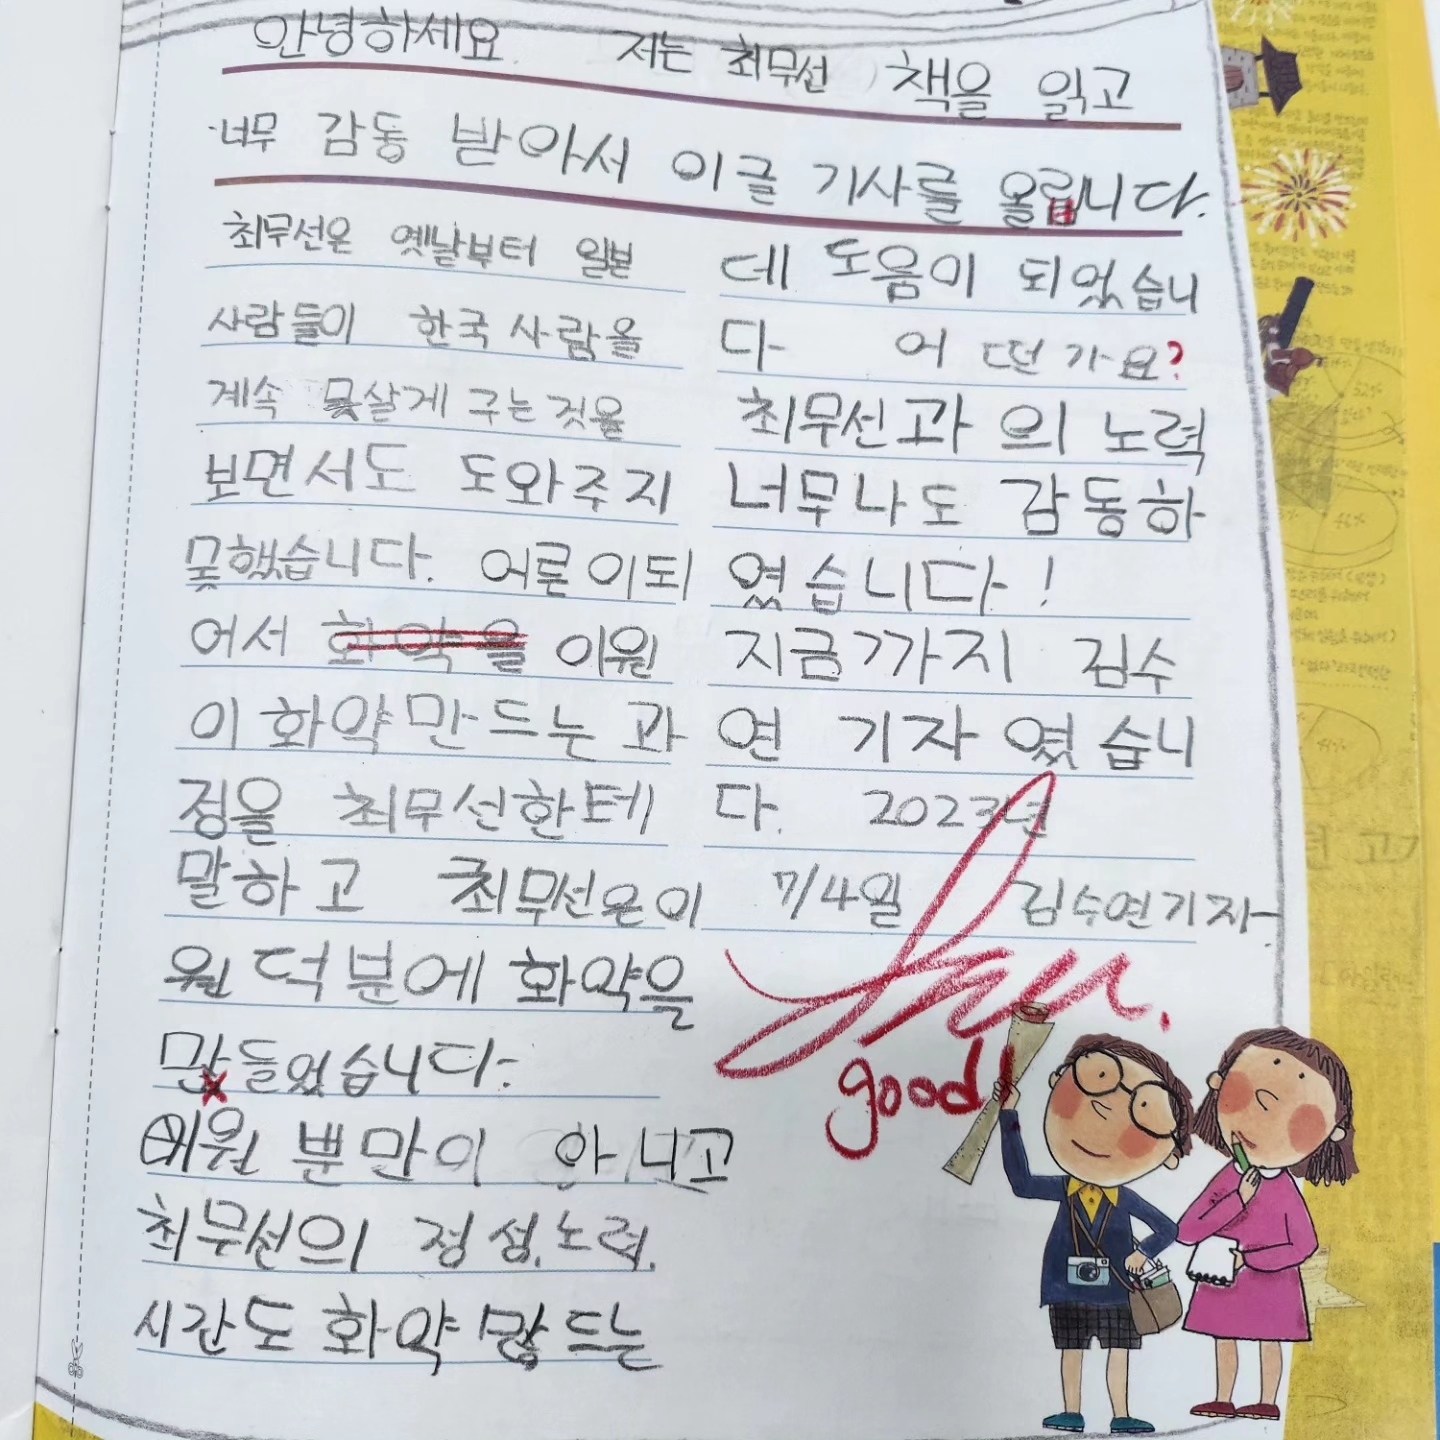 안녕하세요 저는 최무선 책을 읽고
너무 감동 받아서 이글 기사를 올립니다.
최무선은 옛날부터 일본
사람들이 한국사람을
계속 못살게 구는것을
보면서도 도와주지
못했습니다. 어른이되
어서 화약을 이원
이 화약만드는 과
정을 최무선한테
말하고 최무선은이
원 덕분에 화약을
많들었습니다.
이원 뿐만이 아니고
최무선의 정성,노력,
시간도 화약 많드는
데 도움이 되었습니
다 어떤가요?
최무선과 의 노력
너무나도 감동하
였습니다!
지금까지 김수
연 기자였습니
다. 2023년
7/4일 김수연기자
good!